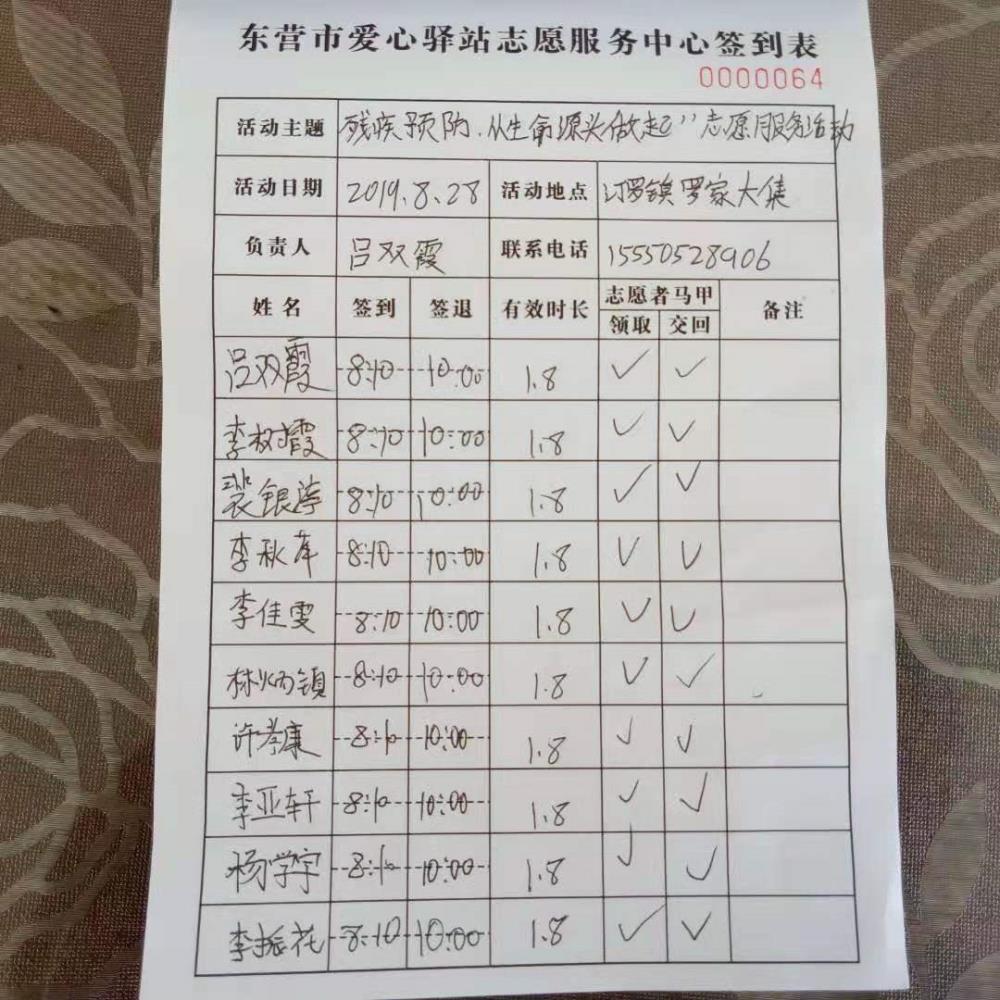 东营市爱心驿站志愿服务中心签到表
0000064
活动主题 残疾预防.从生命源头做起"志愿服务活动
活动日期 2019.8.28 活动地点 汀罗镇罗家大集
负责人 吕双霞 联系电话 15550528906
姓名 签到 签退 有效时长 志愿者马甲 备注
领取 交回
吕双霞 8:10 10:00 1.8 ✓ ✓
李树霞 8:10 10:00 1.8 ✓ ✓
裴银萍 8:10 10:00 1.8 ✓ ✓
李秋萍 8:10 10:00 1.8 ✓ ✓
李佳雯 8:10 10:00 1.8 ✓ ✓
林炳镇 8:10 10:00 1.8 ✓ ✓
许孝康 8:10 10:00 1.8 ✓ ✓
李亚轩 8:10 10:00 1.8 ✓ ✓
杨学宇 8:10 10:00 1.8 ✓ ✓
李振花 8:10 10:00 1.8 ✓ ✓